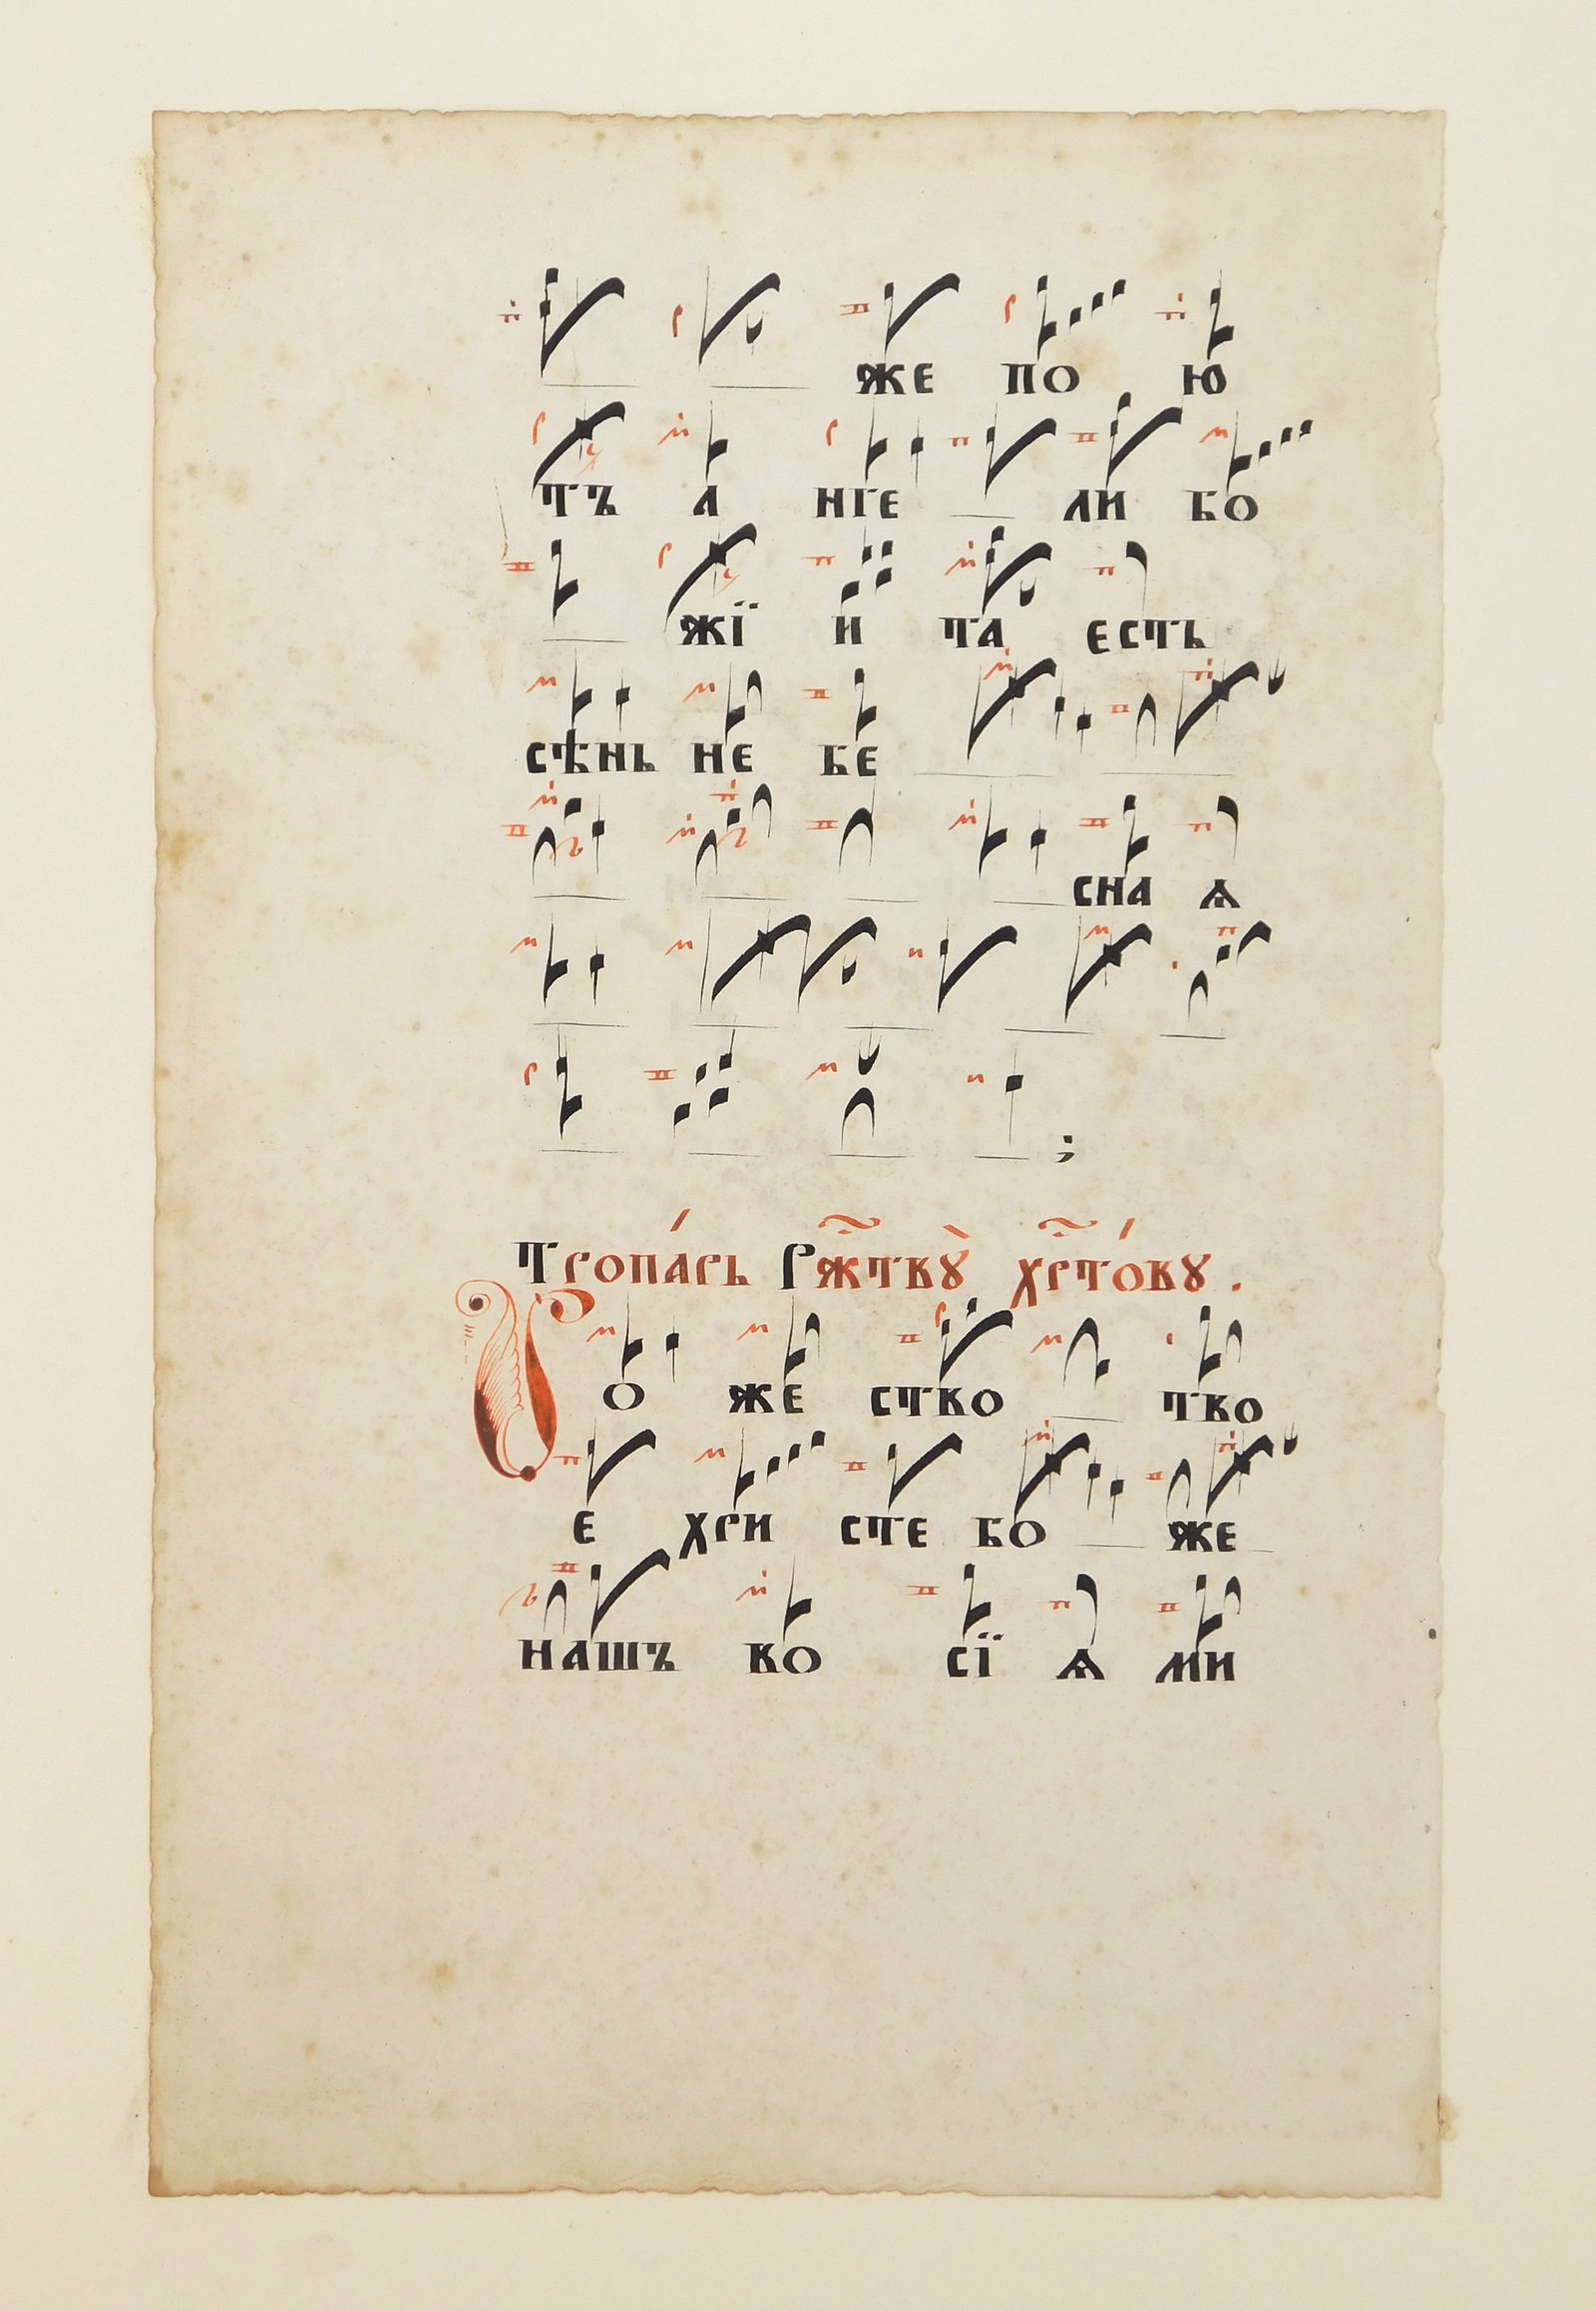 же по ю
тъ а нге ли бо
жї и та есть
сѣнь не бе
сна ѧ
;
Тропа́рь Рж҃твꙋ̀ хрⷭ҇то́вꙋ.
Ро же ство тво
е хри сте бо же
нашъ во сї ѧ ми